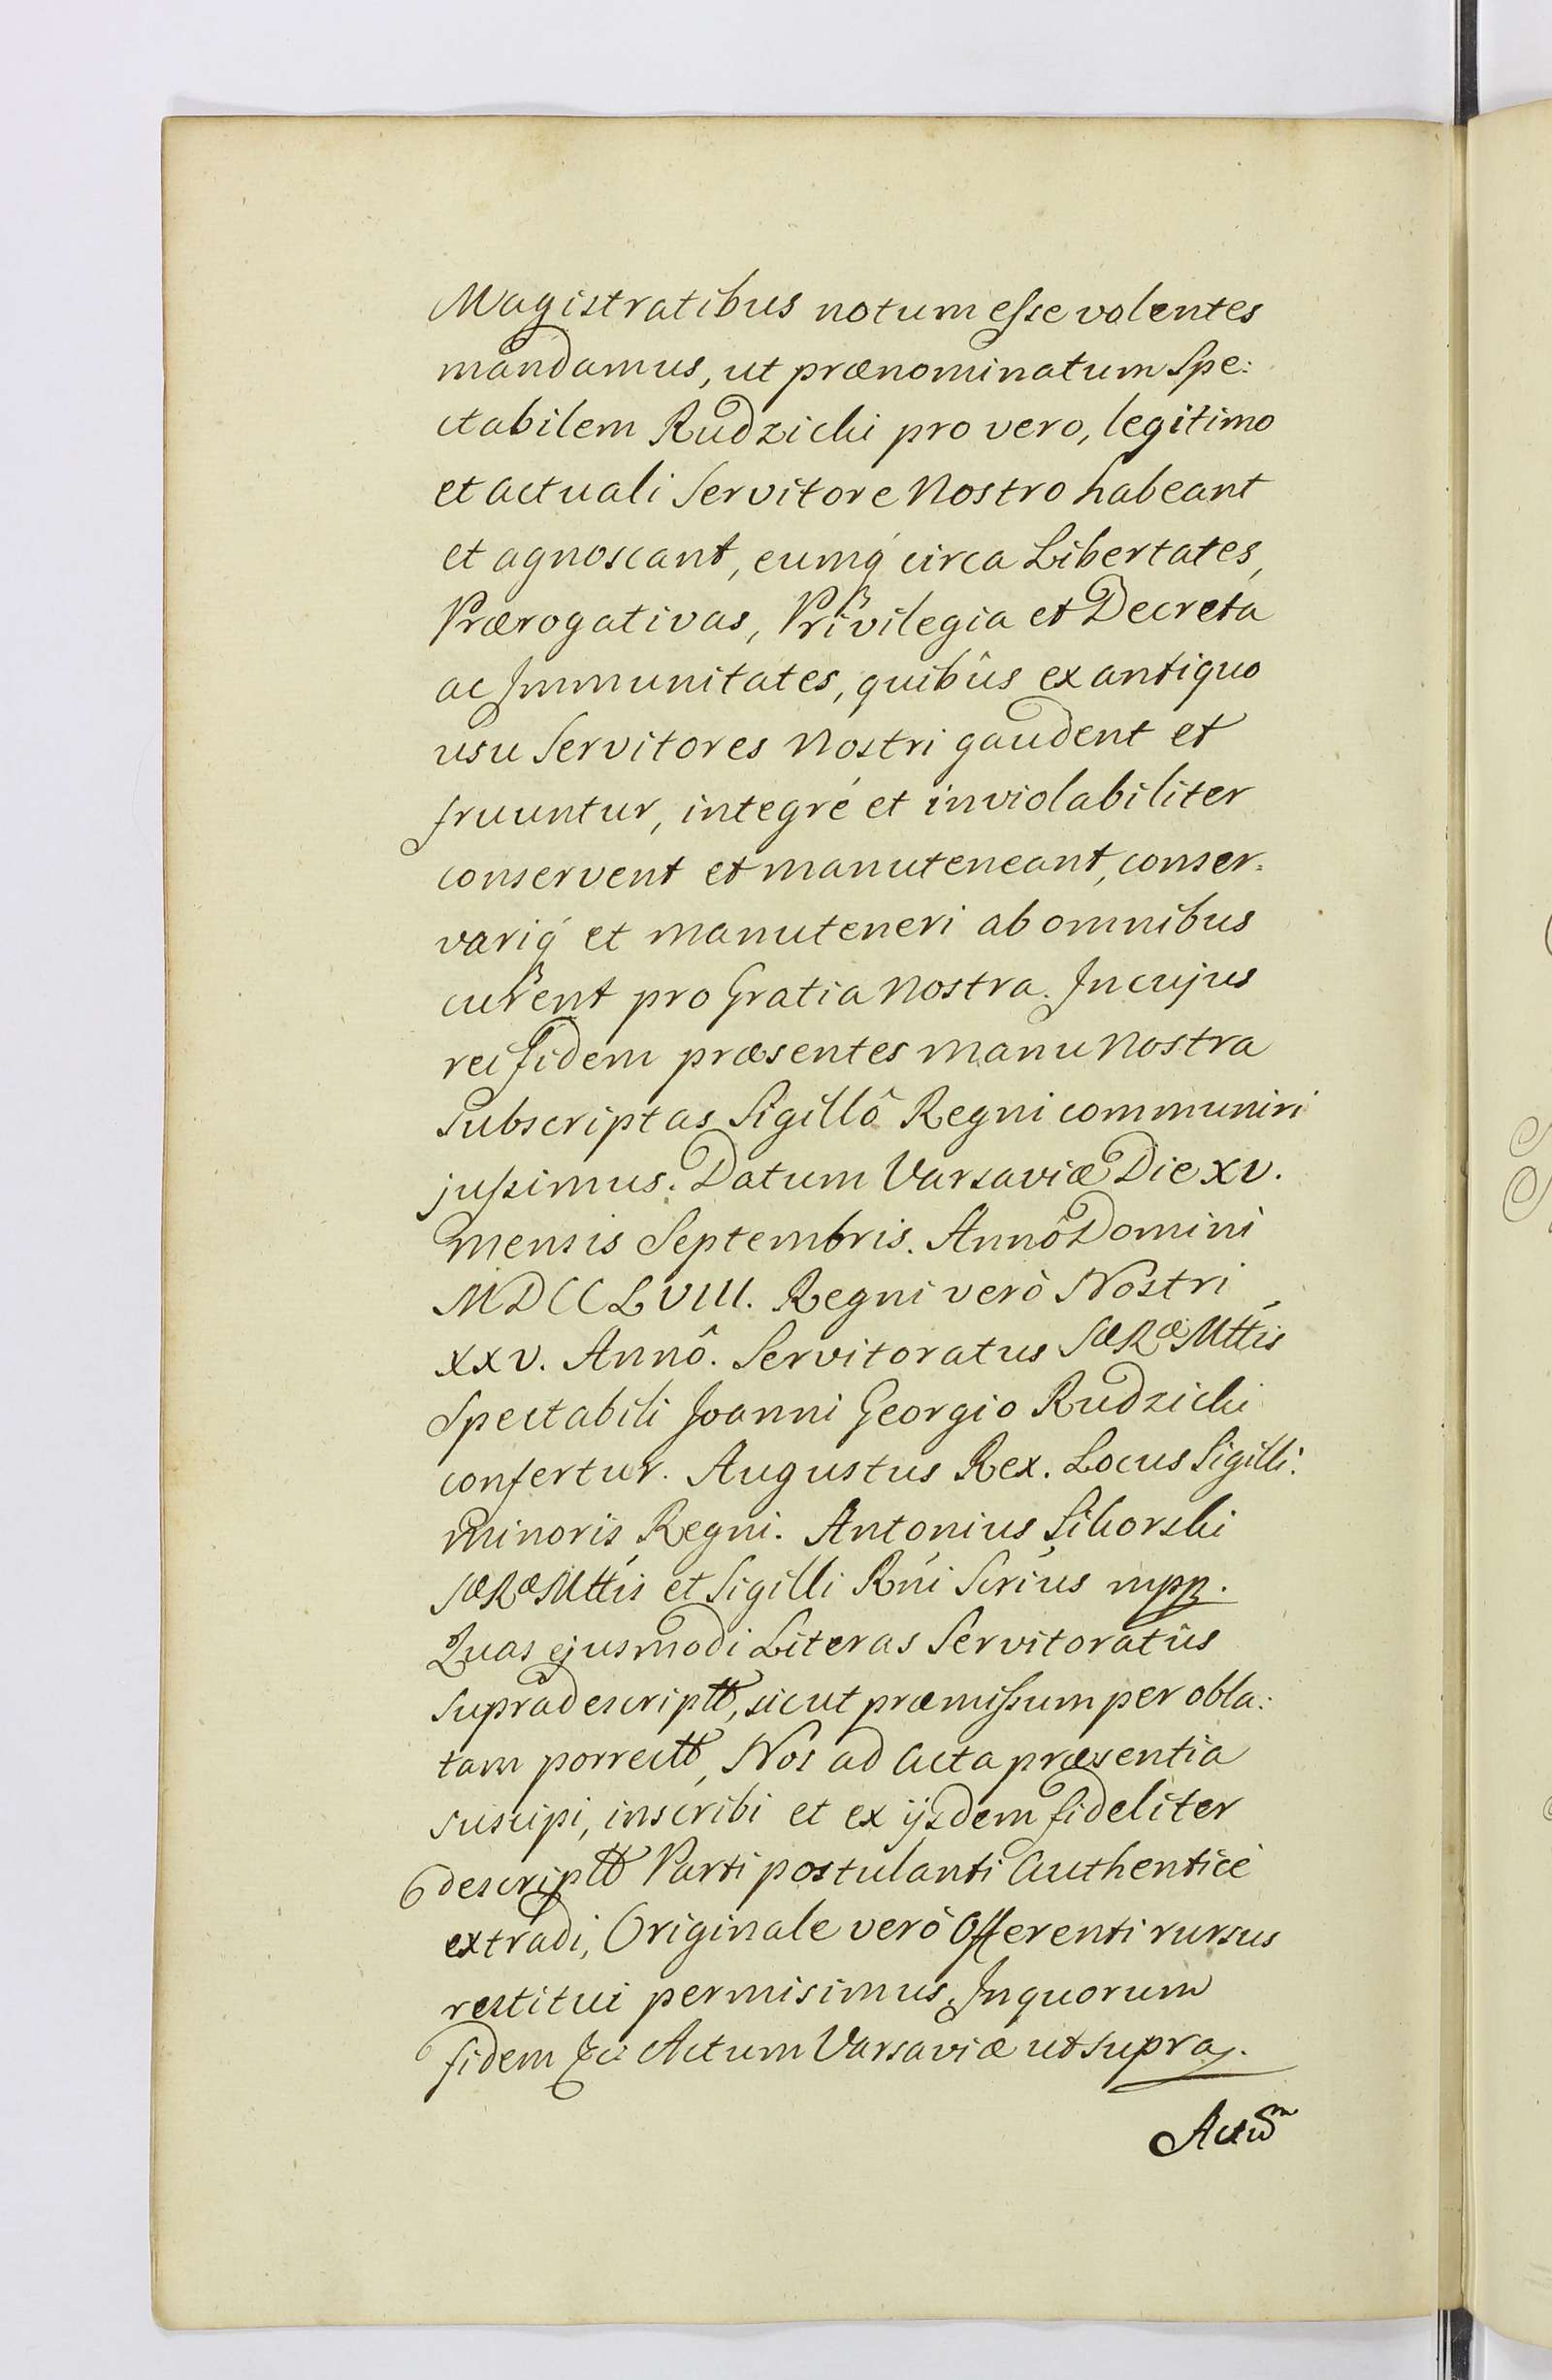 Magistratibus notum esse volentes
mandamus, ut prænominatum Spe:
ctabilem Rudzicki pro vero, legitimo
et actuali Servitore Nostro habeant
et agnoscant, eumq́ circa Libertates,
Prærogativas, Privilegia et Decreta
ac Immunitates, quibûs ex antiquo
usu Servitores Nostri gaudent et
fruuntur, integré et inviolabiliter
conservent et manuteneant, conser:
variq́ et manuteneri ab omnibus
curent pro Gratia Nostra. In cujus
rei fidem præsentes manu Nostra
subscriptas Sigillô Regni communiri
jussimus. Datum Varsaviæ Die XV.
Mensis Septembris. Annô Domini
MDCCLVIII. Regni verò Nostri
XXV. Annô. Servitoratus SæRæMttis
Spectabili Joanni Georgio Rudzicki
confertur. Augustus Rex. Locus Sigilli.
minoris Regni. Antonius Sikorski
SæRæMttis et Sigilli Rńi Scrius mpp.
Quas ejusmodi Literas Servitoratûs
supradescriptt, sicut præmissum per obla:
tam porrectt, Nos ad Acta præsentia
suscipi, inscribi et ex ijsdem fideliter
descriptt Parti postulanti Authenticè
extradi, Originale verò Offerenti rursus
restitui permisimus. In quorum
fidem &c: Actum Varsaviæ ut supra.